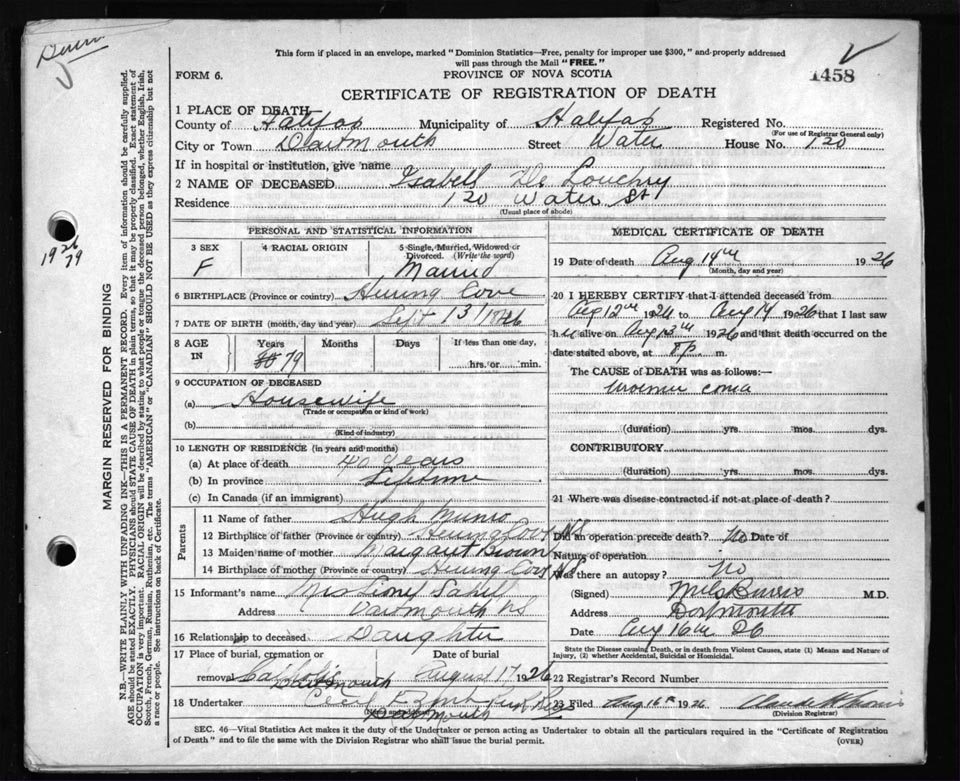 This form if placed in an envelope, marked "Dominion Statistics—Free, penalty for improper use $300," and properly addressed
will pass through the Mail "FREE."
FORM 6.
PROVINCE OF NOVA SCOTIA
1458
CERTIFICATE OF REGISTRATION OF DEATH
1 PLACE OF DEATH
County of Halifax Municipality of Halifax Registered No.
(For use of Registrar General only)
City or Town Dartmouth Street Water House No. 120
If in hospital or institution, give name
2 NAME OF DECEASED Isabell De
Residence 120 Water St
(Usual place of abode)
PERSONAL AND STATISTICAL INFORMATION
3 SEX
F
4 RACIAL ORIGIN
5 Single, Married, Widowed or
Divorced. (Write the word)
Married
6 BIRTHPLACE (Province or country) Herring Cove
7 DATE OF BIRTH (month, day and year) Sept 13 1846
8 AGE IN
Years
79
Months
Days
If less than one day,
hrs. or min.
9 OCCUPATION OF DECEASED
(a) Housewife
(Trade or occupation or kind of work)
(b)
(Kind of industry)
10 LENGTH OF RESIDENCE (in years and months)
(a) At place of death 40 years
(b) In province Lifetime
(c) In Canada (if an immigrant)
Parents
11 Name of father Hugh Munro
12 Birthplace of father (Province or country) Herring Cove N.S.
13 Maiden name of mother Margaret Brown
14 Birthplace of mother (Province or country) Herring Cove N.S.
15 Informant's name Mrs
Address Dartmouth NS
16 Relationship to deceased Daughter
17 Place of burial, cremation or
removal
Dartmouth
Date of burial
August 17 1926
18 Undertaker
Dartmouth
MEDICAL CERTIFICATE OF DEATH
19 Date of death Aug 14th 1926
(Month, day and year)
20 I HEREBY CERTIFY that I attended deceased from
Aug 12th 1926 to Aug 14 1926 that I last saw
h alive on Aug 13th 1926 and that death occurred on
date stated above, at 8 p. m.
The CAUSE of DEATH was as follows:—
uraemic coma
(duration) yrs. mos. dys.
CONTRIBUTORY
(duration) yrs. mos. dys.
21 Where was disease contracted if not at place of death?
Did an operation precede death? No Date of
Nature of operation
Was there an autopsy? No
(Signed) M.D.
Address Dartmouth
Date Aug 16th 26
State the Disease causing Death, or in death from Violent Causes, state (1) Means and Nature of
Injury, (2) whether Accidental, Suicidal or Homicidal.
22 Registrar's Record Number
23 Filed Aug 16th 1926
(Division Registrar)
SEC. 46—Vital Statistics Act makes it the duty of the Undertaker or person acting as Undertaker to obtain all the particulars required in the "Certificate of Registration
of Death" and to file the same with the Division Registrar who shall issue the burial permit.
(OVER)
MARGIN RESERVED FOR BINDING
N.B.—WRITE PLAINLY WITH UNFADING INK—THIS IS A PERMANENT RECORD. Every item of information should be carefully supplied.
AGE should be stated EXACTLY. PHYSICIANS should STATE CAUSE OF DEATH in plain terms, so that it may be properly classified. Exact statement of
OCCUPATION is very important. RACIAL ORIGIN will be described by stating to what people or tongue the deceased person belonged, whether English, Irish,
Scotch, French, German, Russian, Ruthenian, etc. The terms "AMERICAN" or "CANADIAN" SHOULD NOT BE USED as they express citizenship but not
a race or people. See instructions on back of Certificate.
1926
79